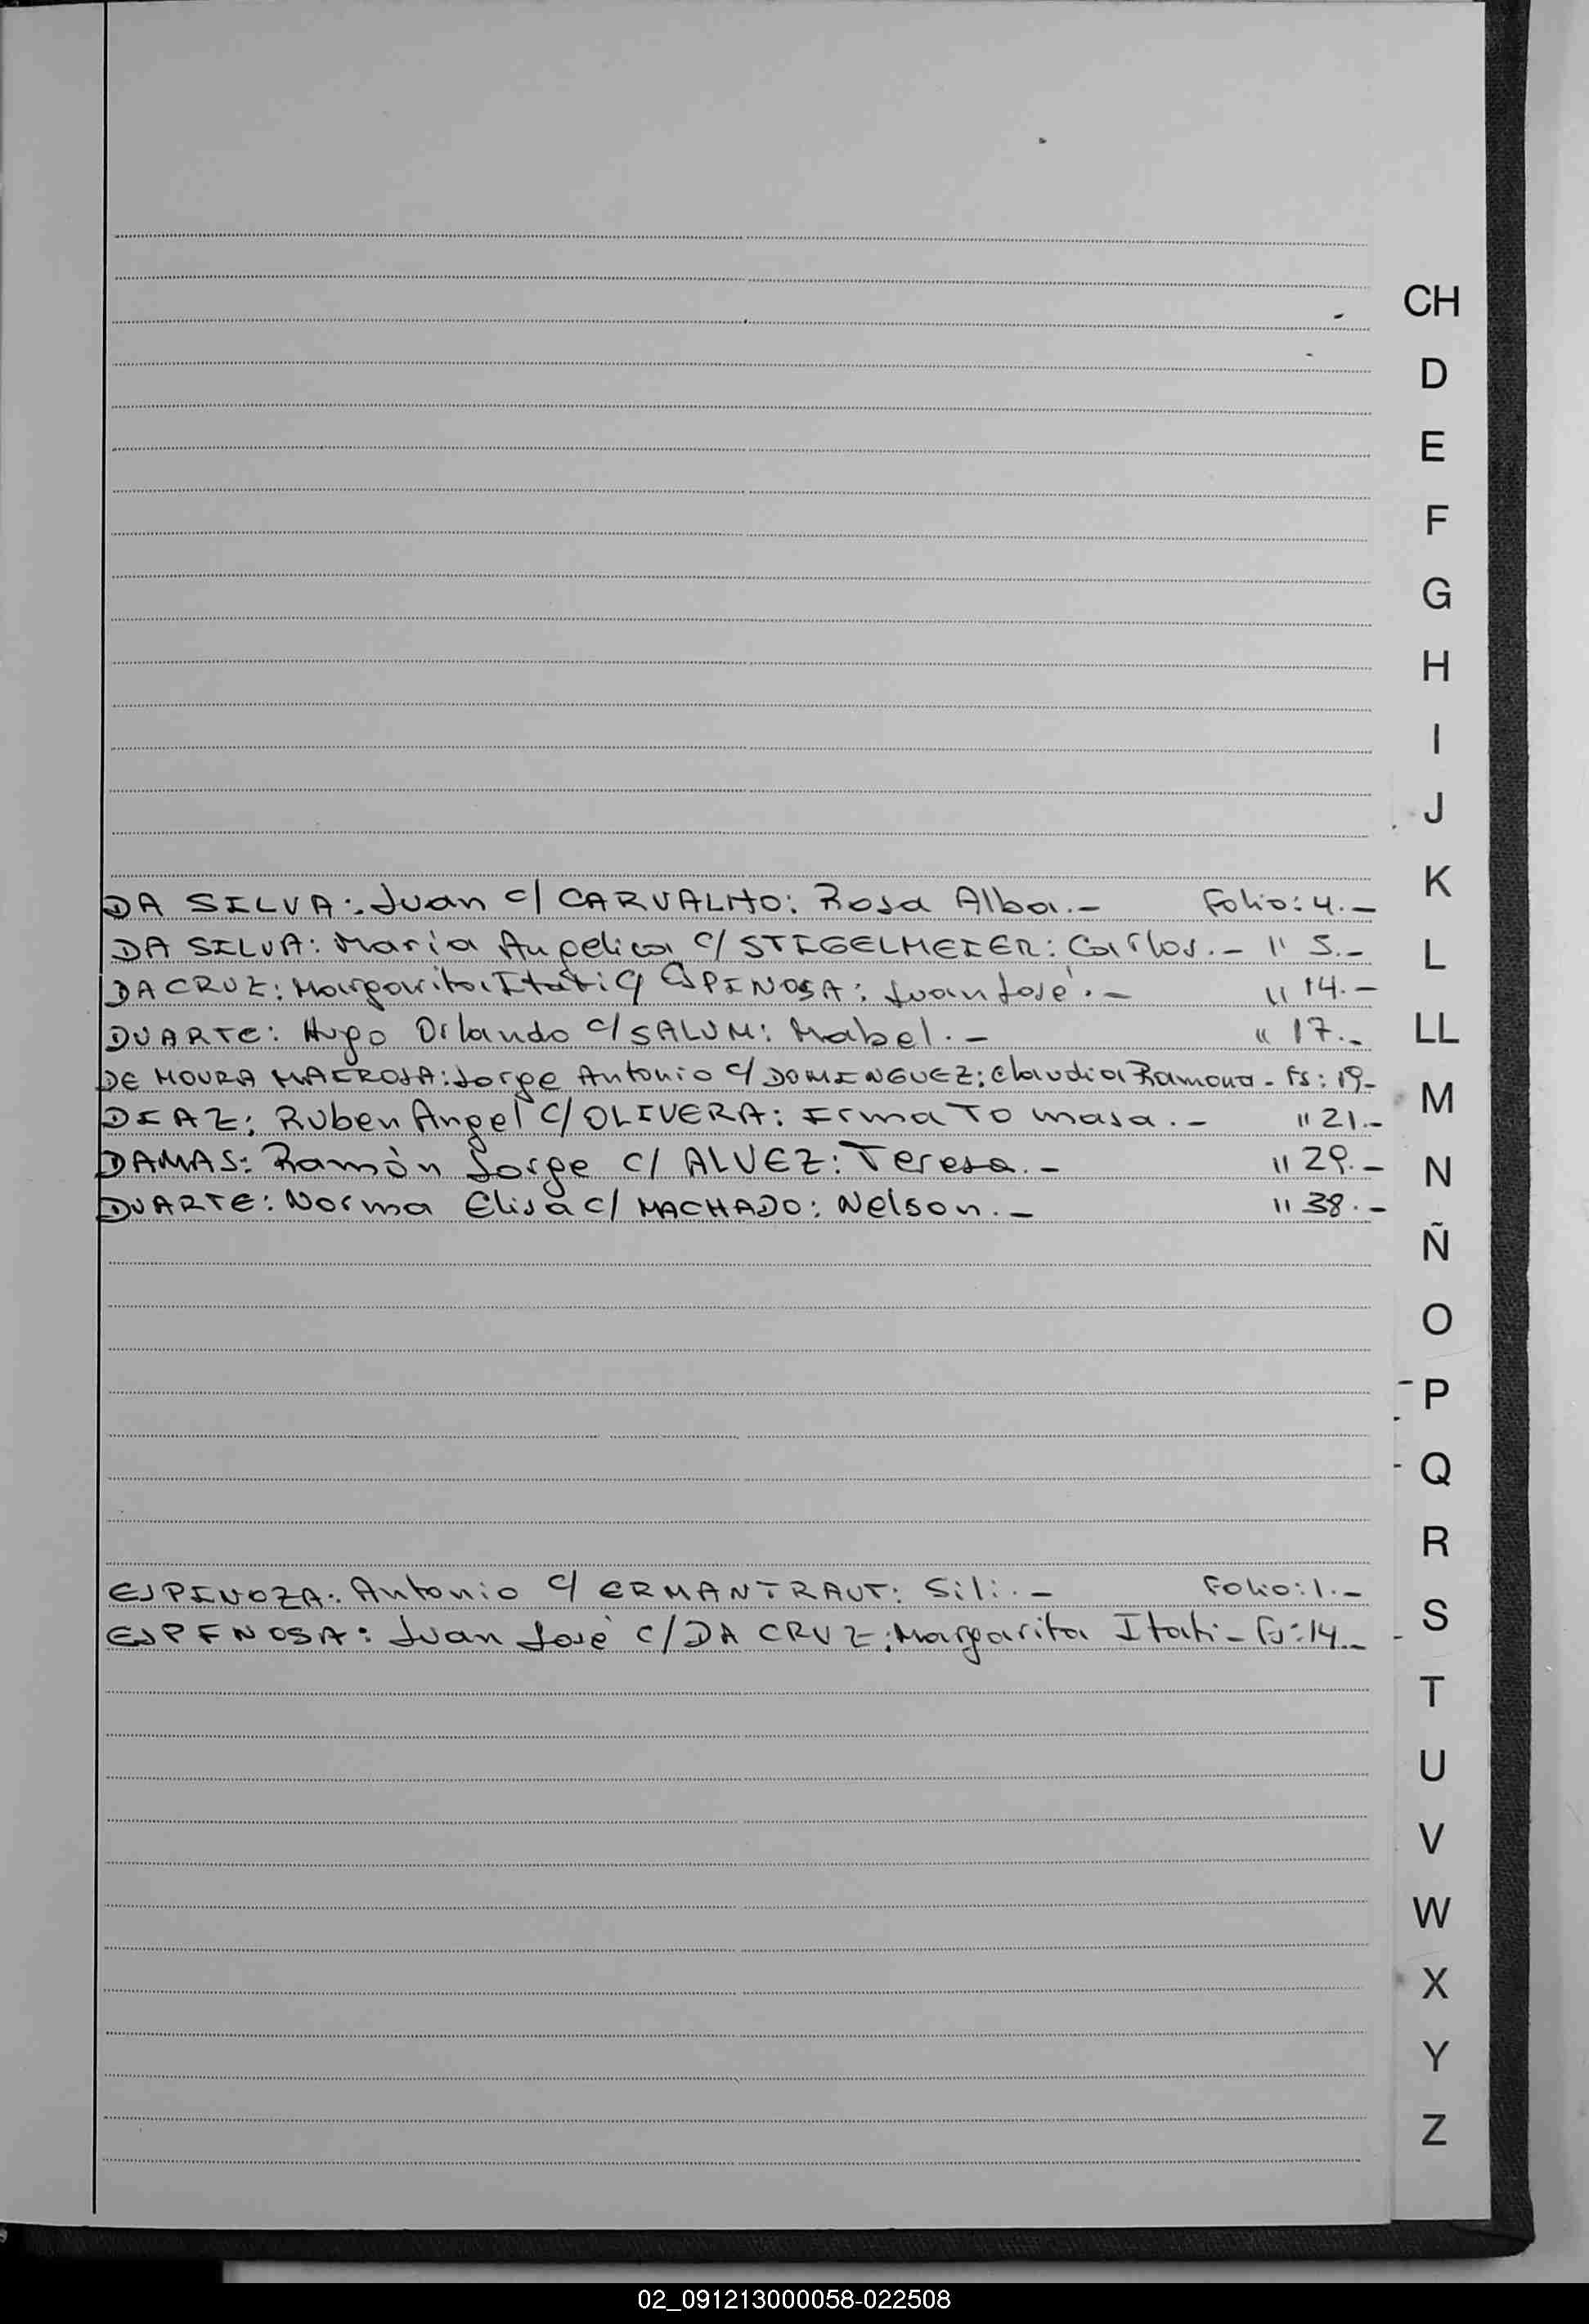 CH
D
E
F
G
H
I
J
K
DA SILVA: Juan c/ CARVALHO: Rosa Alba.- Folio: 4.-
DA SILVA: Maria Angelica c/ STIGELMEIER: Carlos.- " 5.-
L
DA CRUZ: Margarita Itati c/ ESPINOSA: Juan José.- " 14.-
DUARTE: Hugo Orlando c/ SALUM: Mabel.- " 17.-
LL
DE MOURA MAEROSA: Jorge Antonio c/ DOMINGUEZ: Claudia Ramona - Fs: 19-
M
DIAZ: Ruben Angel c/ OLIVERA: Irma Tomasa.- " 21.-
DAMAS: Ramón Jorge c/ ALVEZ: Teresa.- " 29.-
N
DUARTE: Norma Elisa c/ MACHADO: Nelson.- " 38.-
Ñ
O
P
Q
R
ESPINOZA: Antonio c/ ERMANTRAUT: Sili.- Folio: 1.-
S
ESPINOSA: Juan José c/ DA CRUZ: Margarita Itati - Fs: 14.-
T
U
V
W
X
Y
Z
02_091213000058-022508